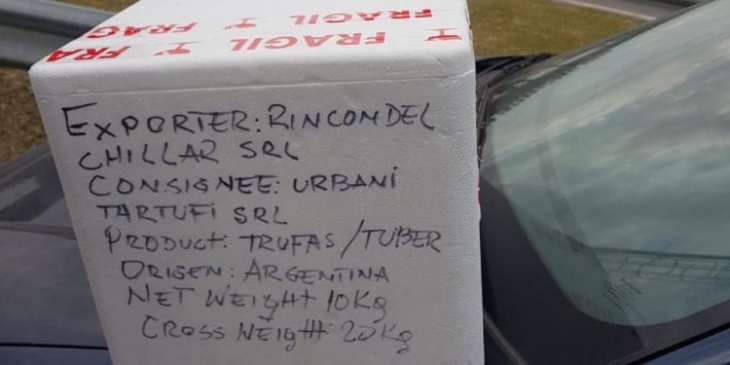 FRAGIL FRAGIL
FRA FRAGIL FRAGIL
EXPORTER: RINCOMDEL
CHILLAR SRL
CONSIGNEE: URBANI
TARTUFI SRL
PRODUCT: TRUFAS/TUBER
ORIGEN: ARGENTINA
NET WEIGHT 10Kg
CROSS WEIGHT: 20Kg